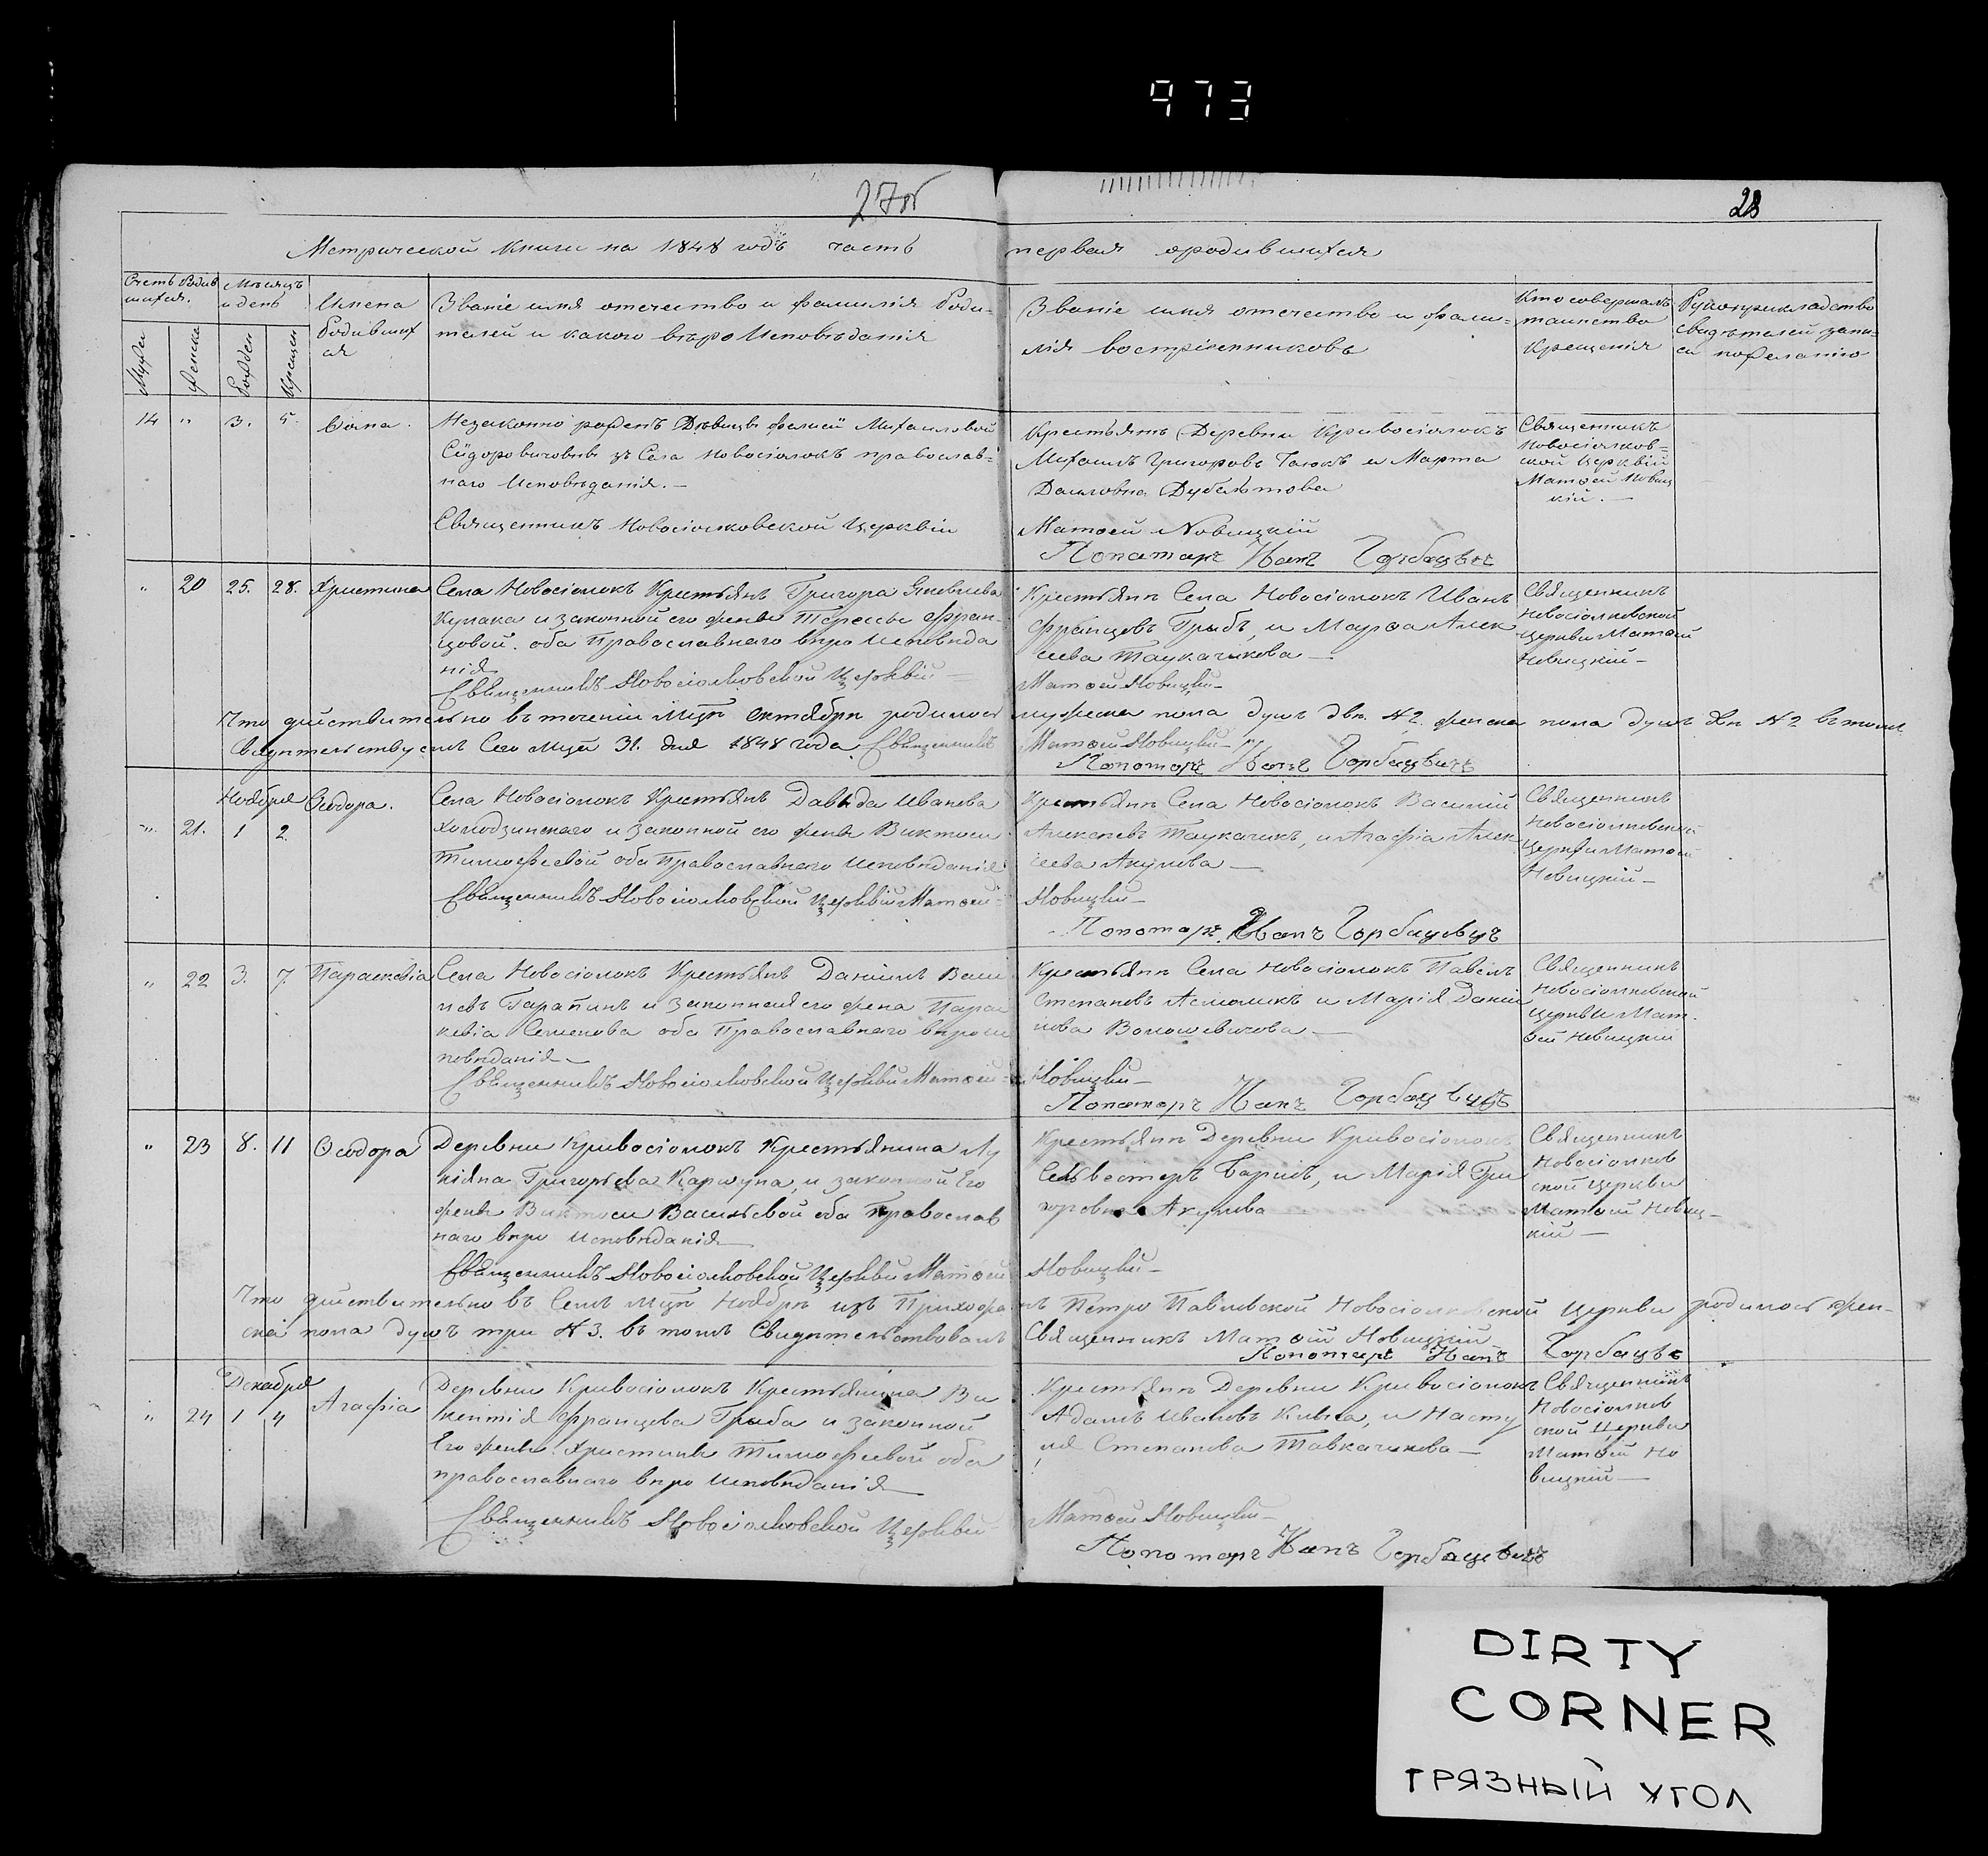 973
27об
28
Метрической книги на 1848 годъ часть первая о родившихся
Счетъ Родив
шихся.
Мѣсяцъ
и день
Имена
Родивших
ся
Званіе имя отечество и фамилія Роди-
телей и какого вѣроИсповѣданія
Званіе имя отечество и фами-
лія воспріемниковъ
Кто совершалъ
таинство
Крещенія
Рукоприкладство
свидѣтелей запи-
си по желанію
Мужеи
Женска
Рожден
Крещен
14 " 3. 5.
Незаконно рожденъ Дѣвицы Михаиловой
Сидоровичовны зъ Села Новосіолокъ православ-
наго Исповѣданія. —
Священникъ Новосіолковской Церквіи
Крестьянъ Деревни Кривосіолокъ
Михаилъ Григоровъ и Марта
Дубатовва
Матѳей Новицкій
Понамарь Иванъ Горбацевич
Священникъ
Новосіолков-
ской Церквій
Матѳей Новиц
кій. —
" 20 25. 28. Христина
Села Новосіолокъ Крестьянъ Григора Яковлева
Кулака и законной его жены Терессы Фран-
цовой. оба Православнаго вѣро Исповѣда
нія
Священникъ Новосіолковской Церквій
Крестьянъ Села Новосіолокъ Иванъ
Францовъ Грыбъ, и Марѳа Алек
сеева Таукачикова —
Матѳей Новицкій
Священникъ
Новосіолковской
Церкви Матѳей
Новицкій —
Что дѣйствительно въ теченіи Мцѣ Октября родилось мужеска пола душъ двѣ № 2. женска пола душъ двѣ № 2 въ томъ
Свидѣтельствуемъ Сего Мцы 31. дня 1848 года Священникъ Матѳей Новицкій
Пономарь Иванъ Горбацевичъ
Ноября Ѳеодора.
" 21. 1 2.
Села Новосіолокъ Крестьянъ Давыда Иванова
Холодзинскаго и законной его жены Виктоси
Тимофеевой оба Православнаго Исповѣданія
Священникъ Новосіолковской Церквій Матѳей
Крестьянъ Села Новосіолокъ Василій
Алексѣевъ Таукачикъ, и Агафія Алек
сеева Акулова —
Новицкій
Пономарь Иванъ Горбацевичъ
Священникъ
Новосіолковской
Церкви Матѳей
Новицкій —
" 22 3. 7. Параскевія
Села Новосіолокъ Крестьянъ Даніилъ Васи
левъ Гарапинъ и законная его жена Парас
кевіа Семенова оба Православнаго вѣро ис
повѣданія —
Священникъ Новосіолковской Церквій Матѳей
Крестьянъ Села Новосіолокъ Павелъ
Степановъ и Марія Даніи
лова Волошевичова —
Новицкій
Пономарь Иванъ Горбацевичъ
Священникъ
Новосіолковской
Церкви Мат-
ѳей Новицкій
" 23 8. 11 Ѳеодора
Деревни Кривосіолокъ Крестьянина Лу
кіяна Григорьева Каршуна, и законной Его
жены Виктоси Васильевой оба Православ
наго вѣро Исповѣданія
Священникъ Новосіолковской Церквій Матѳей
Крестьянъ Деревни Кривосіолокъ
Сильвестеръ и Марія Гри
горовна Акулова
Новицкій
Священникъ
Новосіолков
ской Церкви
Матѳей Новиц-
кій —
Что дѣйствительно въ Семъ Мцѣ Ноябрѣ изъ Прихожанъ Петро Павловской Новосіолковской Церкви родилось жен-
ска пола душъ три № 3. въ томъ Свидѣтельствовалъ Священникъ Матѳей Новицкій
Пономарь Иванъ Горбацевъ
Декабря
" 24 1 4 Агафіа
Деревни Кривосіолокъ Крестьянина Ви
кентія Францева Грыба и законной
Его жены Христины Тимофеевой оба
православнаго вѣро Исповѣданія
Священникъ Новосіолковской Церквій
Крестьянъ Деревни Кривосіолокъ
Адамъ Ивановъ и Насту
ля Степанова Тавкачикова —
Матѳей Новицкій
Пономарь Иванъ Горбацевичъ
Священникъ
Новосіолков
ской Церкви
Матѳей Но
вицкій —
DIRTY
CORNER
ГРЯЗНЫЙ УГОЛ